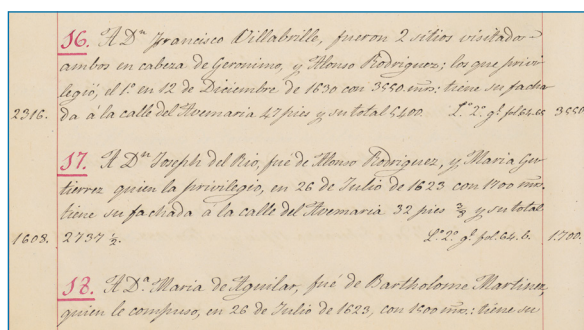 16. A Dn. Francisco Villabrille, fueron 2 sitios visitados
ambos en cabeza de Geronimo, y Alonso Rodriguez; los que privi-
legió, el 1º en 12 de Diciembre de 1630 con 3550 mrs: tiene su facha-
2316. da à la calle del Avemaria 47 pies y su total 5400. Lº 2º gl fol 64. 3550
17. A Dn. Joseph del Rio, fué de Alonso Rodriguez, y Maria Gu-
tierrez quien la privilegio, en 26 de Julio de 1623 con 1700 mrs.
tiene su fachada a la calle del Avemaria 32 pies y su total
1608. 2737 ½. Lº 2º gl fol. 64. b. 1.700.
18. A Dª Maria de Aguilar, fué de Bartholome Martinez,
quien le compuso, en 26 de Julio de 1623, con 1500 mrs: tiene su